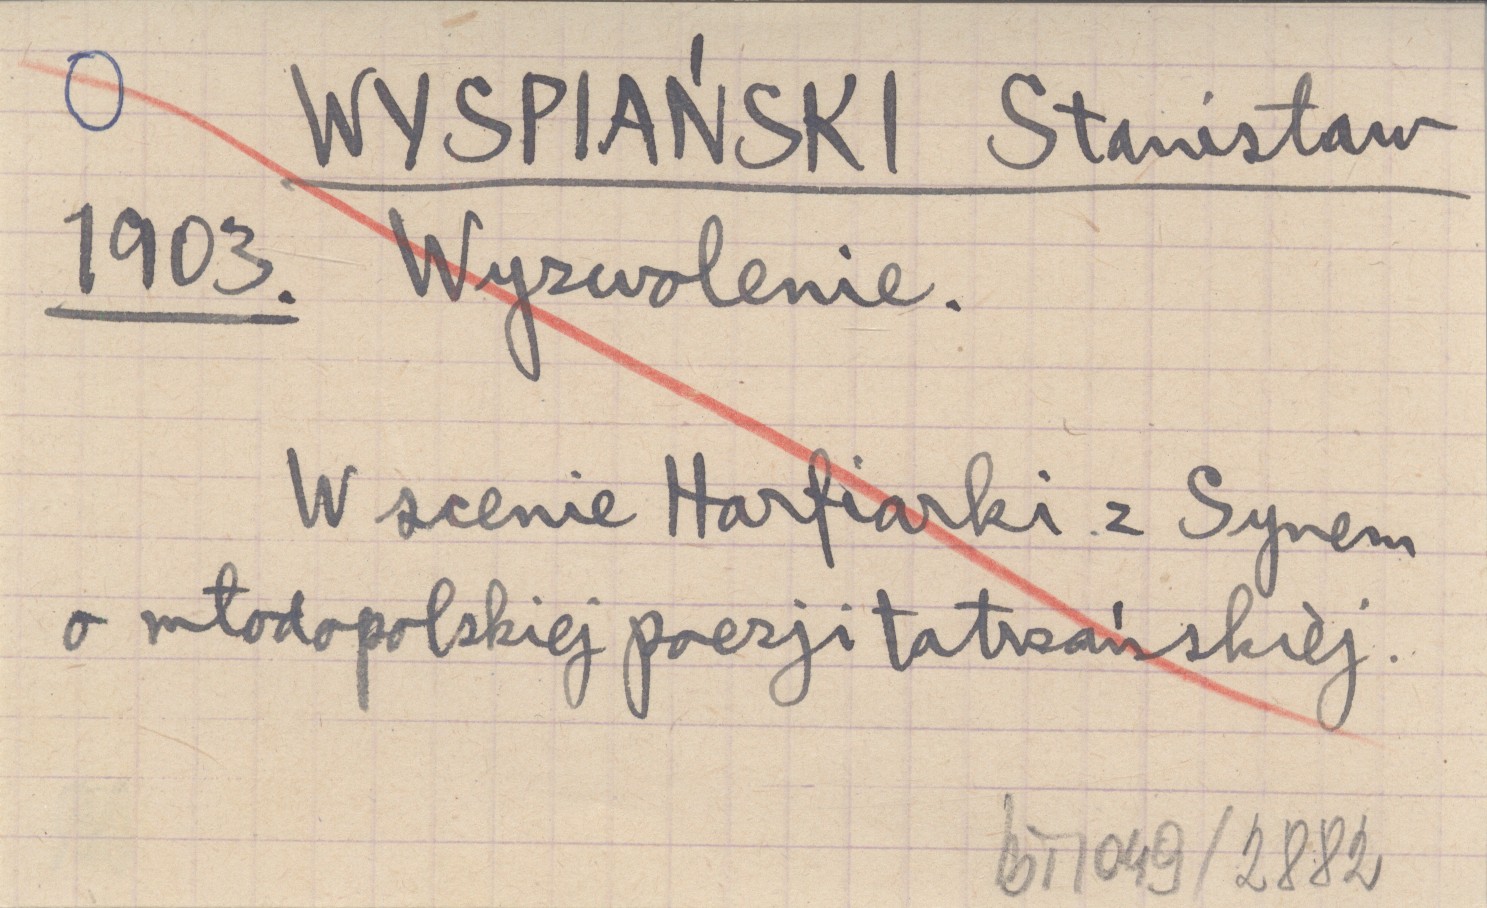 O WYSPIAŃSKI Stanisław
1903. Wyzwolenie.
W scenie Harfiarki z Synem
o młodopolskiej poezji tatrzańskiej.
049/2882